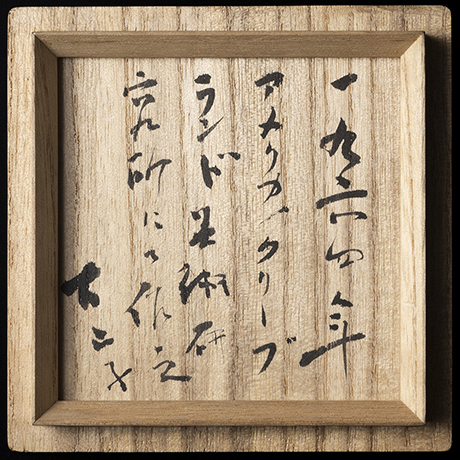 一九六四年
アメリカ、クリーブ
ランド美術研
究所にて作之